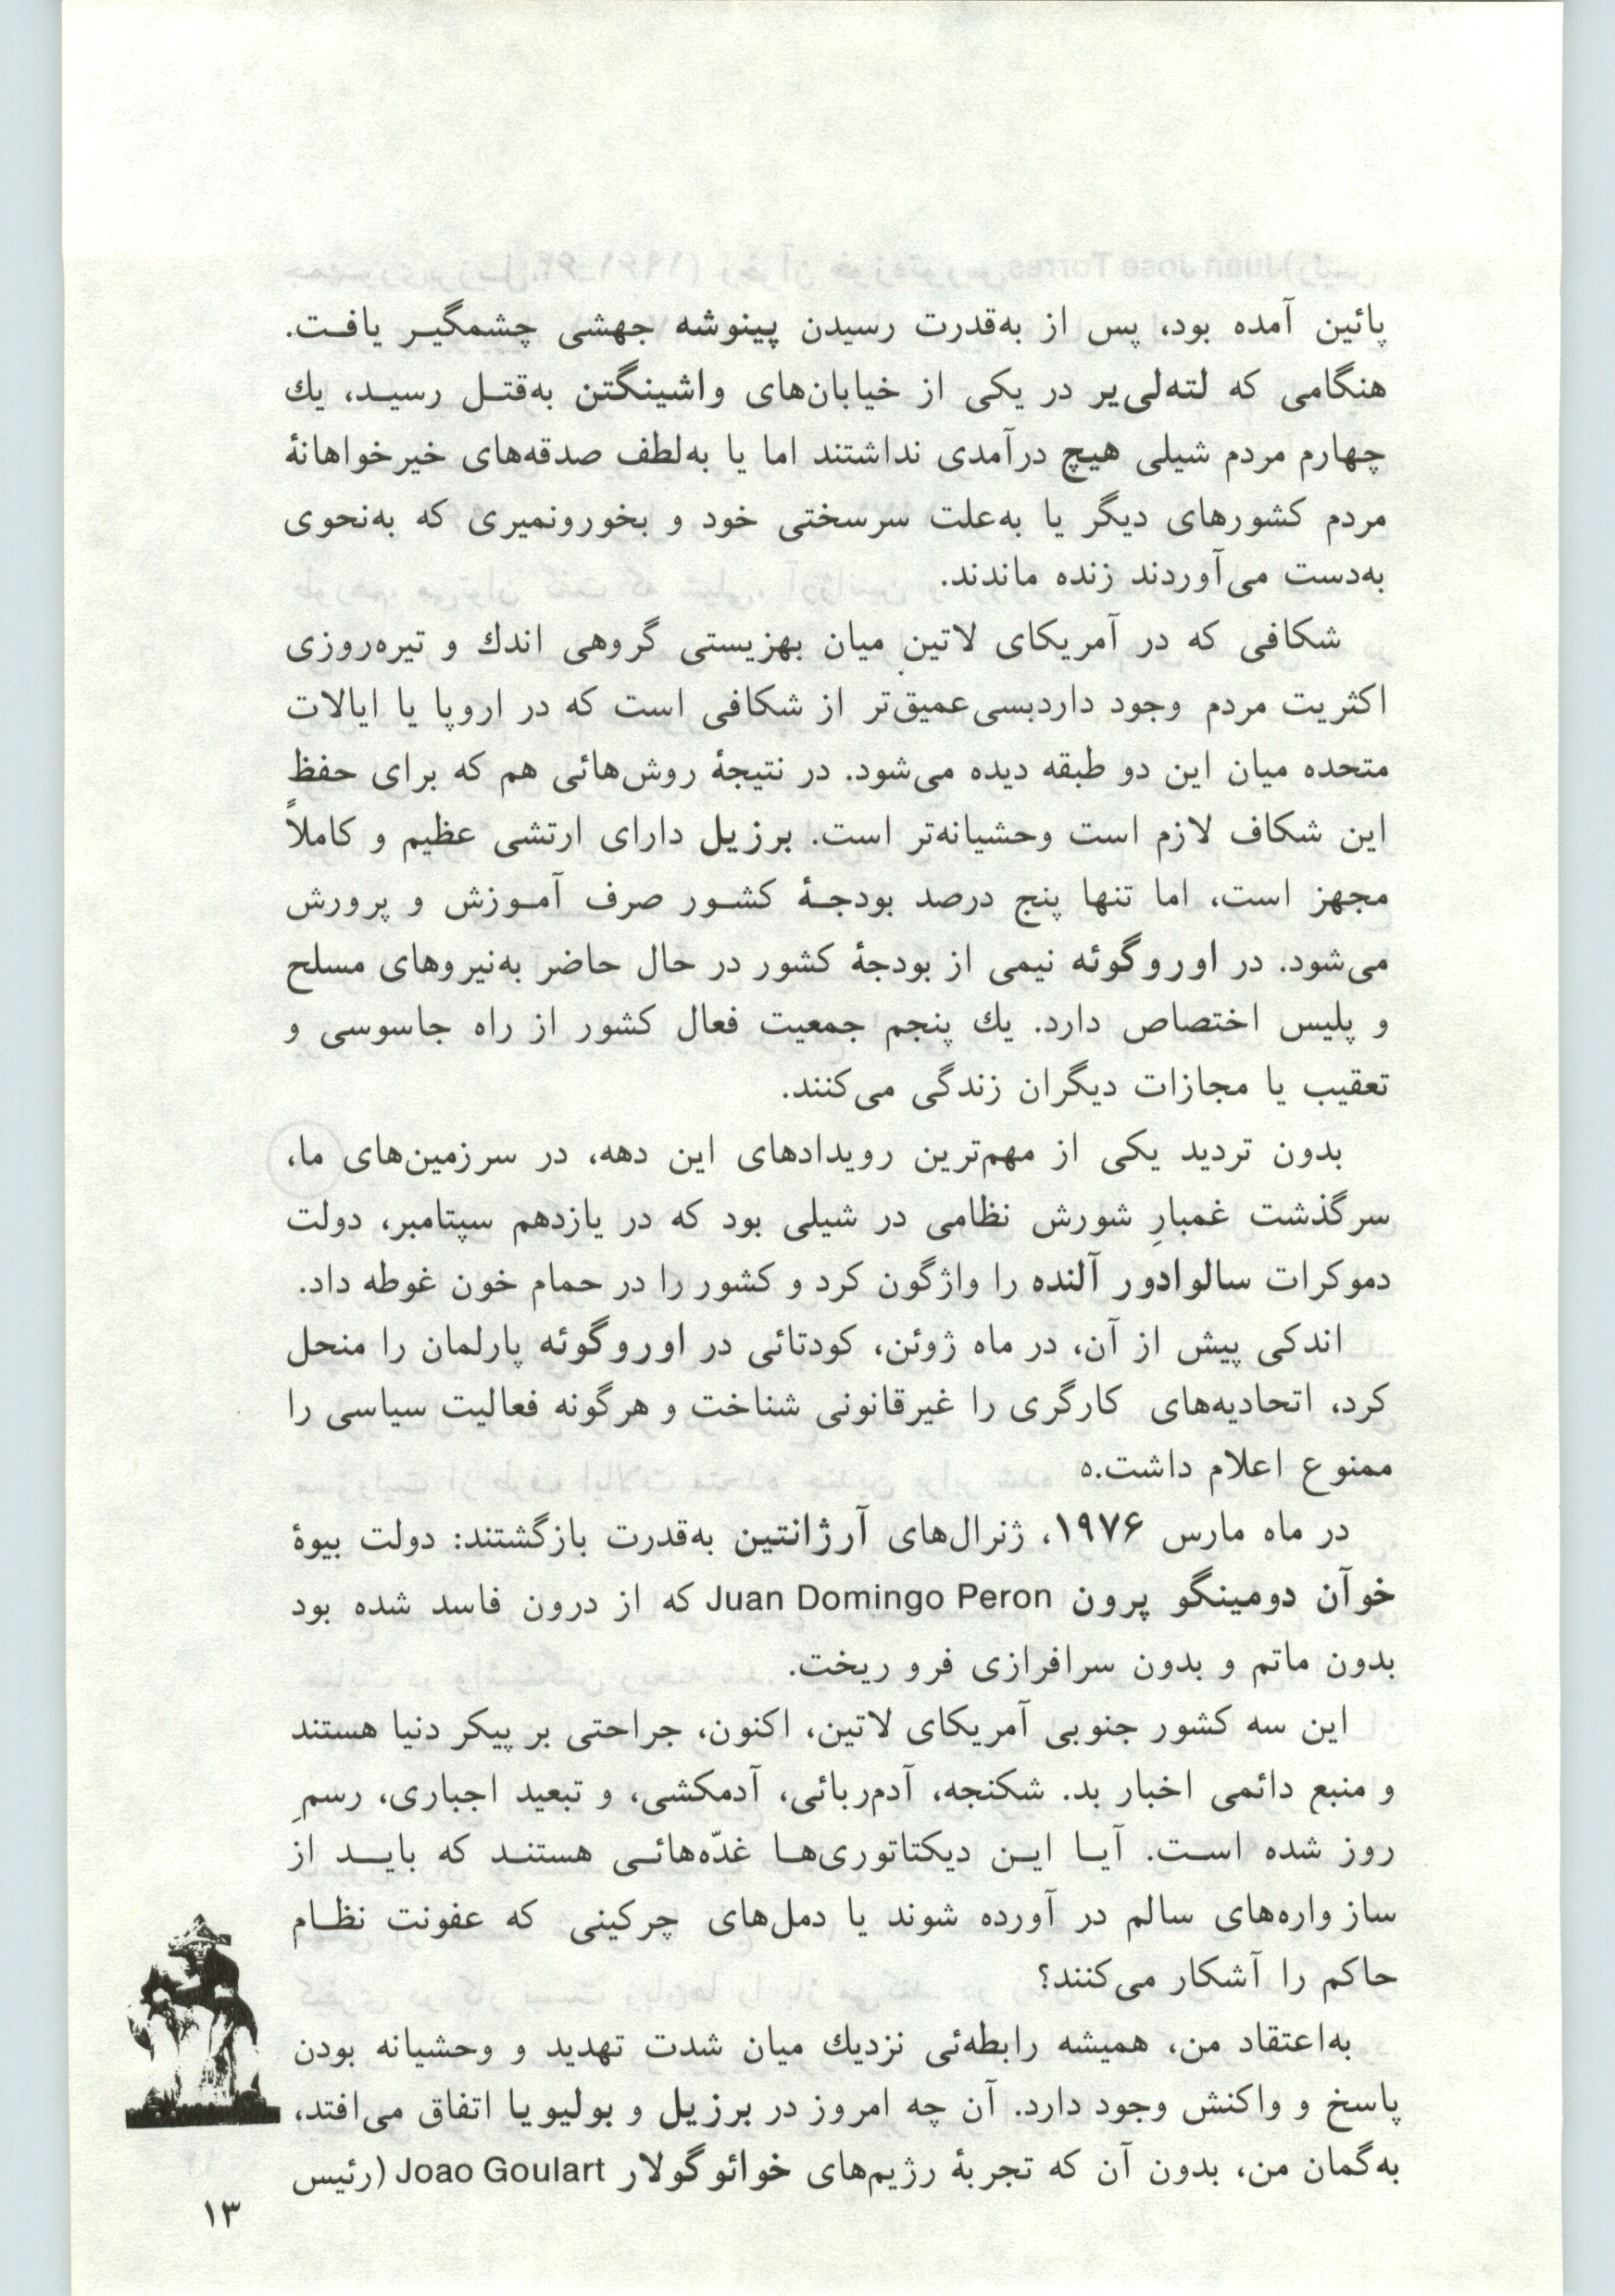 پائین آمده بود، پس از به‌قدرت رسیدن پینوشه جهشی چشمگیـر یافـت.
هنگامی که لته‌لی‌یر در یکی از خیابان‌های واشینگتن به‌قتـل رسیـد، یك
چهارم مردم شیلی هیچ درآمدی نداشتند اما یا به‌لطف صدقه‌های خیرخواهانهٔ
مردم کشورهای دیگر یا به‌علت سرسختی خود و بخورونمیری که به‌نحوی
به‌دست می‌آوردند زنده ماندند.
شکافی که در آمریکای لاتین میان بهزیستی گروهی اندك و تیره‌روزی
اکثریت مردم وجود داردبسی‌عمیق‌تر از شکافی است که در اروپا یا ایالات
متحده میان این دو طبقه دیده می‌شود. در نتیجهٔ روش‌هائی هم که برای حفظ
این شکاف لازم است وحشیانه‌تر است. برزیل دارای ارتشی عظیم و کاملاً
مجهز است، اما تنها پنج درصد بودجـهٔ کشـور صرف آمـوزش و پرورش
می‌شود. در اوروگوئه نیمی از بودجهٔ کشور در حال حاضر به‌نیروهای مسلح
و پلیس اختصاص دارد. یك پنجم جمعیت فعال کشور از راه جاسوسی و
تعقیب یا مجازات دیگران زندگی می‌کنند.
بدون تردید یکی از مهم‌ترین رویدادهای این دهه، در سرزمین‌های ما،
سرگذشت غمبارِ شورش نظامی در شیلی بود که در یازدهم سپتامبر، دولت
دموکرات سالوادور آلنده را واژگون کرد و کشور را در حمام خون غوطه داد.
اندکی پیش از آن، در ماه ژوئن، کودتائی در اوروگوئه پارلمان را منحل
کرد، اتحادیه‌های کارگری را غیرقانونی شناخت و هرگونه فعالیت سیاسی را
ممنوع اعلام داشت.۵
در ماه مارس ۱۹۷۶، ژنرال‌های آرژانتین به‌قدرت بازگشتند: دولت بیوهٔ
خوآن دومینگو پرون Juan Domingo Peron که از درون فاسد شده بود
بدون ماتم و بدون سرافرازی فرو ریخت.
این سه کشور جنوبی آمریکای لاتین، اکنون، جراحتی بر پیکر دنیا هستند
و منبع دائمی اخبار بد. شکنجه، آدم‌ربائی، آدمکشی، و تبعید اجباری، رسمِ
روز شده اسـت. آیـا ایـن دیکتاتوری‌هـا غدّه‌هائـی هستنـد که بایـد از
ساز واره‌های سالم در آورده شوند یا دمل‌های چرکینی که عفونت نظـام
حاکم را آشکار می‌کنند؟
به‌اعتقاد من، همیشه رابطه‌ئی نزدیك میان شدت تهدید و وحشیانه بودن
پاسخ و واکنش وجود دارد. آن چه امروز در برزیل و بولیویا اتفاق می‌افتد،
به‌گمان من، بدون آن که تجربهٔ رژیم‌های خوائوگولار Joao Goulart (رئیس
۱۳